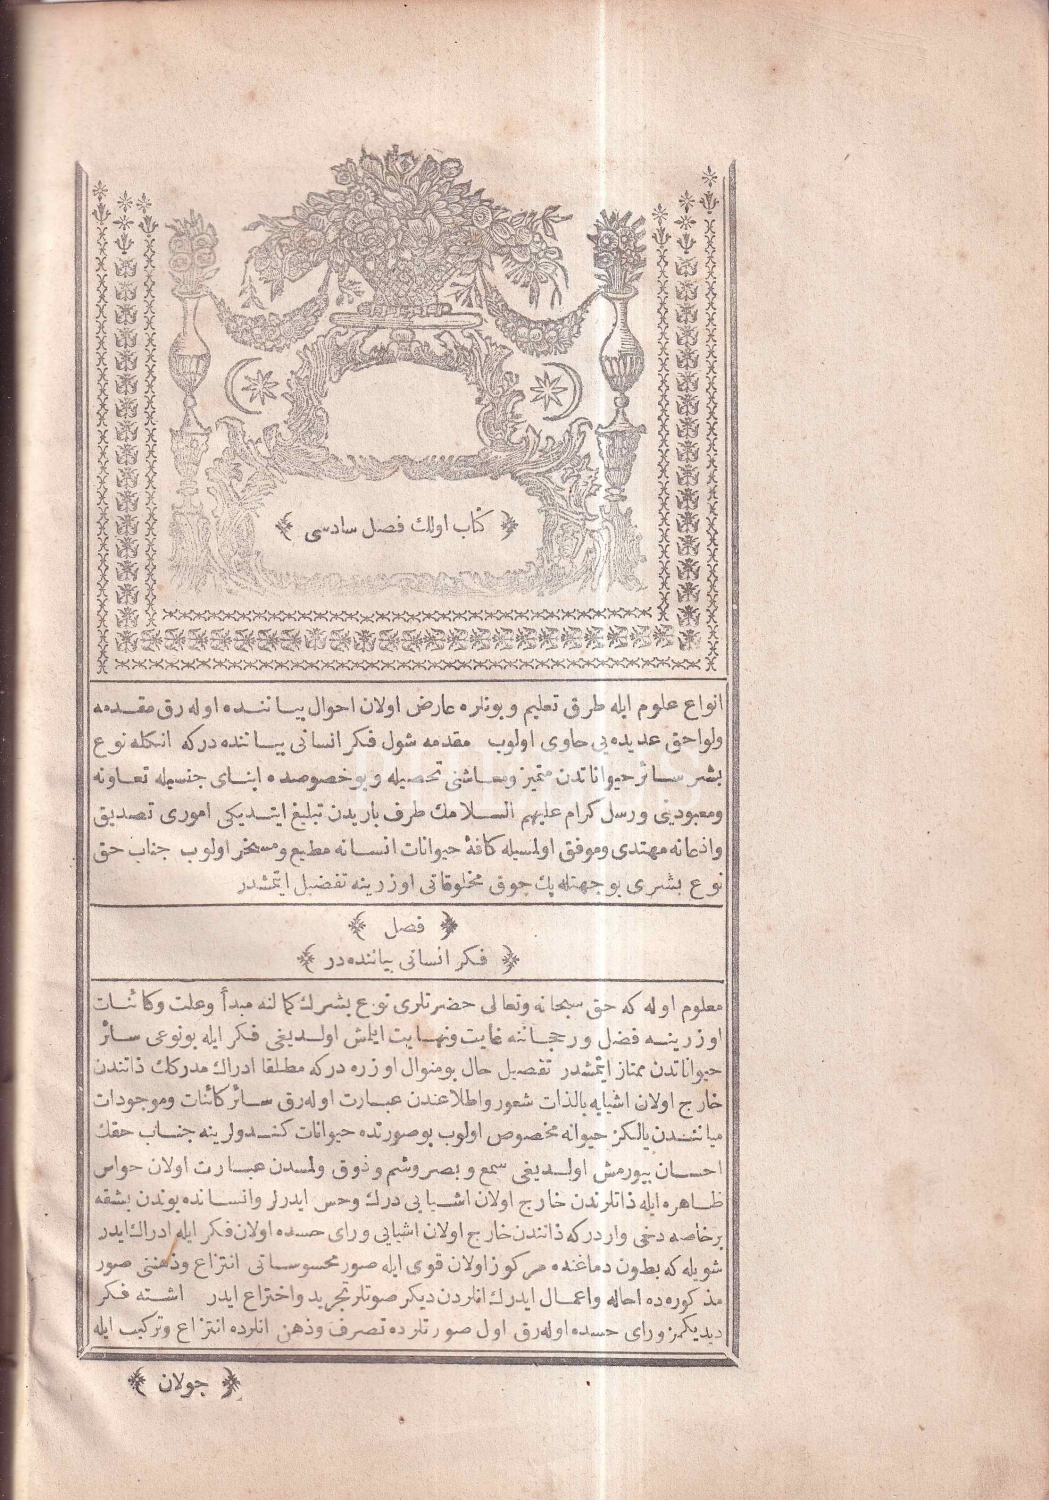 كتاب اولك فصل سادسى
انواع علوم ايله طرق تعليم و بونلره عارض اولان احوال بياننده اوله رق مقدمه
ولواحق عديده يى حاوى اولوب مقدمه شول فكر انسانى بياننده دركه انكله نوع
بشر سائر حيواناتدن متميز ومعاشنى تحصيله و بو خصوصده ابناى جنسيله تعاونه
ومعبودينى ورسل كرام عليهم السلامك طرف باريدن تبليغ ايتديكى امورى تصديق
واذعانه مهتدى وموفق اولمسيله كافهٔ حيوانات انسانه مطيع ومسخر اولوب جناب حق
نوع بشرى بو جهتله پك چوق مخلوقاتى اوزرينه تفضيل ايتمشدر
فصل
فكر انسانى بياننده در
معلوم اوله كه حق سبحانه وتعالى حضرتلرى نوع بشرك كمالنه مبدأ وعلت وكائنات
اوزرينه فضل ورجحاننه غايت ونهايت ايلمش اولديغى فكر ايله بونوعى سائر
حيواناتدن ممتاز ايتمشدر تفصيل حال بومنوال اوزره دركه مطلقا ادراك مدركك ذاتندن
خارج اولان اشيايه بالذات شعور واطلاعندن عبارت اوله رق سائر كائنات وموجودات
مياننندن يالكز حيوانه مخصوص اولوب بوصورتده حيوانات كندولرينه جناب حقك
احسان بيورمش اولديغى سمع و بصر وشم و ذوق ولمسدن عبارت اولان حواس
ظاهره ايله ذاتلرندن خارج اولان اشيايى درك وحس ايدرلر وانسانده بوندن بشقه
برخاصه دخى واردركه ذاتندن خارج اولان اشيايى وراى حسده اولان فكر ايله ادراك ايدر
شويله كه بطون دماغنده مركوز اولان قوى ايله صور محسوساتى انتزاع وذهننى صور
مذكوره ده احاله واعمال ايدرك انلردن ديكر صورتلر تجريد واختراع ايدر اشته فكر
ديديكمز وراى حسده اوله رق اول صورتلرده تصرف وذهن انلرده انتزاع وتركيب ايله
جولان